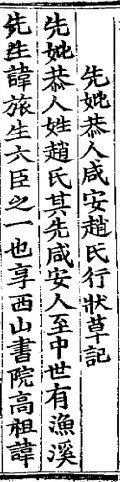 先妣恭人咸安趙氏行狀草記
先妣恭人姓趙氏其先咸安人至中世有漁溪
先生諱旅生六臣之一也享西山書院高祖諱